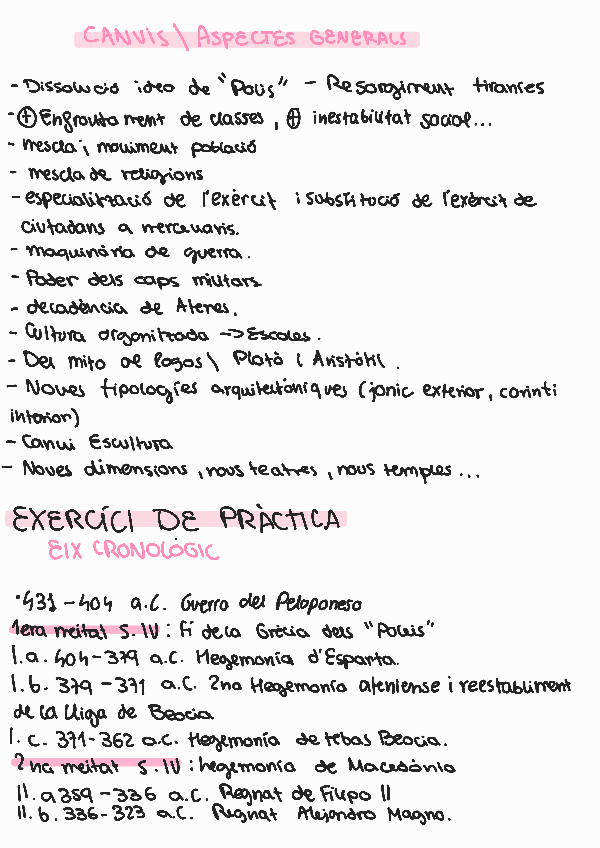 CANVIS \ ASPECTES GENERALS
- Dissolució idea de "Polis" - Resorgiment tiranies
- ⊕ Engroutament de classes, ⊕ inestabilitat social...
- mescla i moviment població
- mescla de religions
- especialització de l'exèrcit i substitució de l'exèrcit de
ciutadans a mercenaris.
- maquinària de guerra.
- Poder dels caps militars
- decadència de Atenes.
- Cultura organitzada -> Escoles.
- Del mito al logos \ Plató i Aristòtil.
- Noves tipologíes arquitectòniques (jonic exterior, corinti
interior)
- Canvi Escultura
- Noves dimensions, nous teatres, nous temples...
EXERCÍCI DE PRÀCTICA
EIX CRONOLÒGIC
·431-404 a.C. Guerra del Peloponeso
1era meitat S. IV: Fí de la Grècia dels "Poleis"
I.a. 404-379 a.C. Hegemonía d'Esparta.
I.b. 379-371 a.C. 2na Hegemonía ateniense i reestabliment
de la lliga de Beocia
I.c. 371-362 a.C. Hegemonía de tebas Beocia.
2na meitat S.IV: hegemonía de Macedònia
II.a 359-336 a.C. Regnat de Filipo II
II.b. 336-323 a.C. Regnat Alejandro Magno.